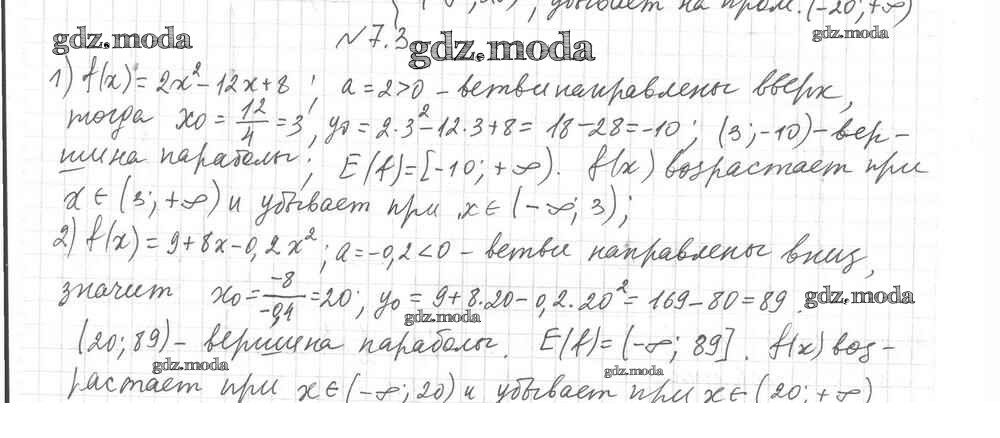 , убывает на пром. (-20;+∞)
gdz.moda
gdz.moda
№7.3
gdz.moda
1) f(x) = 2x² - 12x + 8 ; a = 2 > 0 - ветви направлены вверх,
тогда x₀ = 12/4 = 3 ; y₀ = 2·3² - 12·3 + 8 = 18 - 28 = -10 ; (3; -10) - вер-
шина параболы ; E(f) = [-10; +∞). f(x) возрастает при
x ∈ (3; +∞) и убывает при x ∈ (-∞; 3) ;
2) f(x) = 9 + 8x - 0,2x² ; a = -0,2 < 0 - ветви направлены вниз,
значит x₀ = -8/-0,4 = 20 ; y₀ = 9 + 8·20 - 0,2·20² = 169 - 80 = 89 .
gdz.moda
gdz.moda
(20; 89) - вершина параболы. E(f) = (-∞; 89]. f(x) воз-
gdz.moda
gdz.moda
растает при x ∈ (-∞; 20) и убывает при x ∈ (20; +∞)